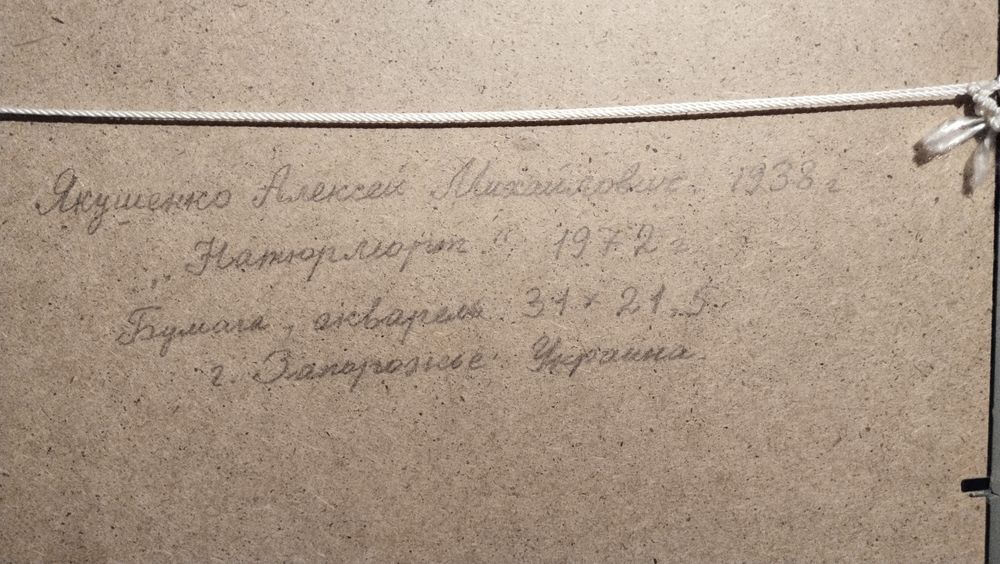 Якушенко Алексей Михайлович. 1938 г
„Натюрморт." 1972 г.
Бумага, акварель. 31 × 21,5.
г. Запорожье. Украина.